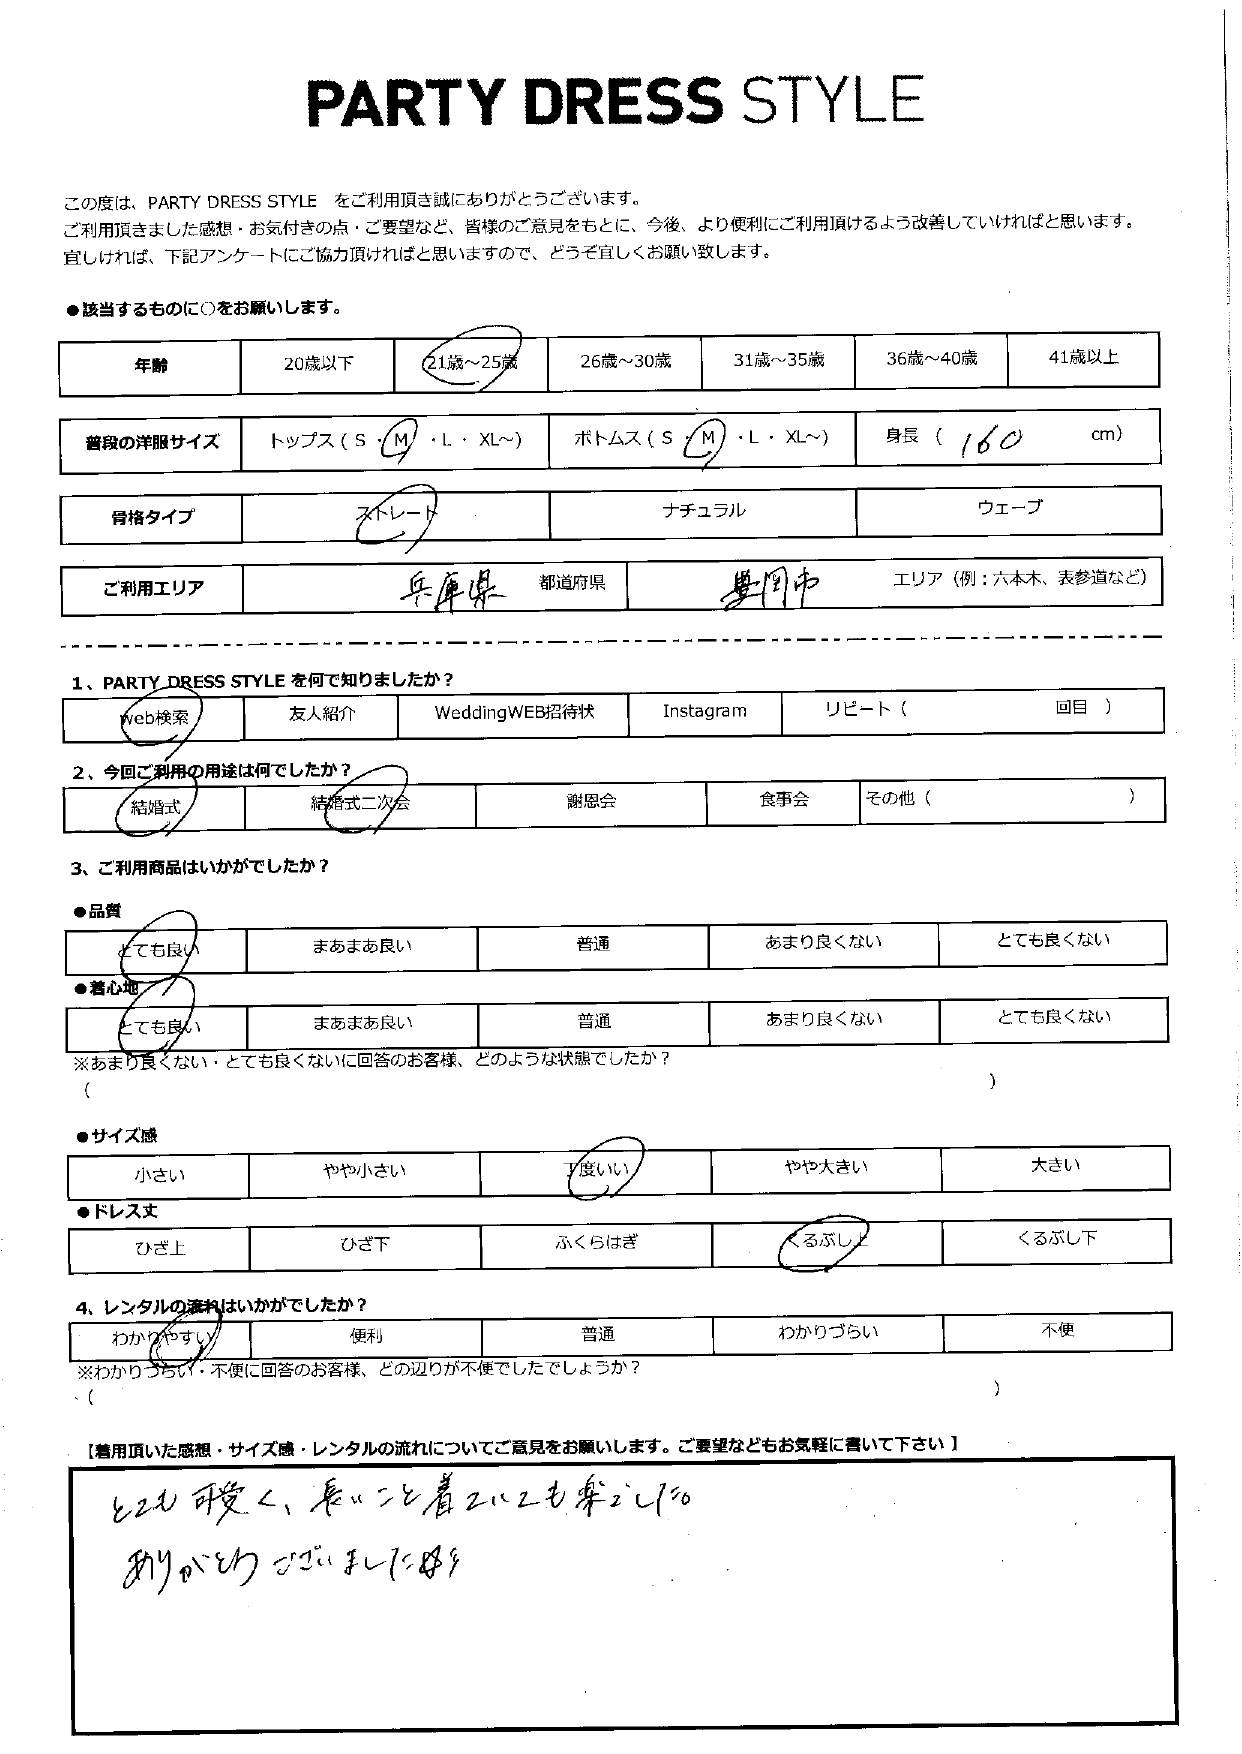 PARTY DRESS STYLE
この度は、PARTY DRESS STYLE をご利用頂き誠にありがとうございます。
ご利用頂きました感想・お気付きの点・ご要望など、皆様のご意見をもとに、今後、より便利にご利用頂けるよう改善していければと思います。
宜しければ、下記アンケートにご協力頂ければと思いますので、どうぞ宜しくお願い致します。
●該当するものに○をお願いします。
年齢 20歳以下 21歳～25歳 26歳～30歳 31歳～35歳 36歳～40歳 41歳以上
普段の洋服サイズ トップス（ S ・ M ・ L ・ XL～） ボトムス（ S ・ M ・ L ・ XL～） 身長 （ 160 cm）
骨格タイプ ストレート ナチュラル ウェーブ
ご利用エリア 兵庫県 都道府県 豊岡市 エリア（例：六本木、表参道など）
1、PARTY DRESS STYLE を何で知りましたか？
web検索 友人紹介 WeddingWEB招待状 Instagram リピート（ 回目 ）
2、今回ご利用の用途は何でしたか？
結婚式 結婚式二次会 謝恩会 食事会 その他（ ）
3、ご利用商品はいかがでしたか？
●品質
とても良い まあまあ良い 普通 あまり良くない とても良くない
●着心地
とても良い まあまあ良い 普通 あまり良くない とても良くない
※あまり良くない・とても良くないに回答のお客様、どのような状態でしたか？
（ ）
●サイズ感
小さい やや小さい 丁度いい やや大きい 大きい
●ドレス丈
ひざ上 ひざ下 ふくらはぎ くるぶし上 くるぶし下
4、レンタルの流れはいかがでしたか？
わかりやすい 便利 普通 わかりづらい 不便
※わかりづらい・不便に回答のお客様、どの辺りが不便でしたでしょうか？
（ ）
【着用頂いた感想・サイズ感・レンタルの流れについてご意見をお願いします。ご要望などもお気軽に書いて下さい 】
とても可愛く、長いこと着ていても楽でした。
ありがとうございました